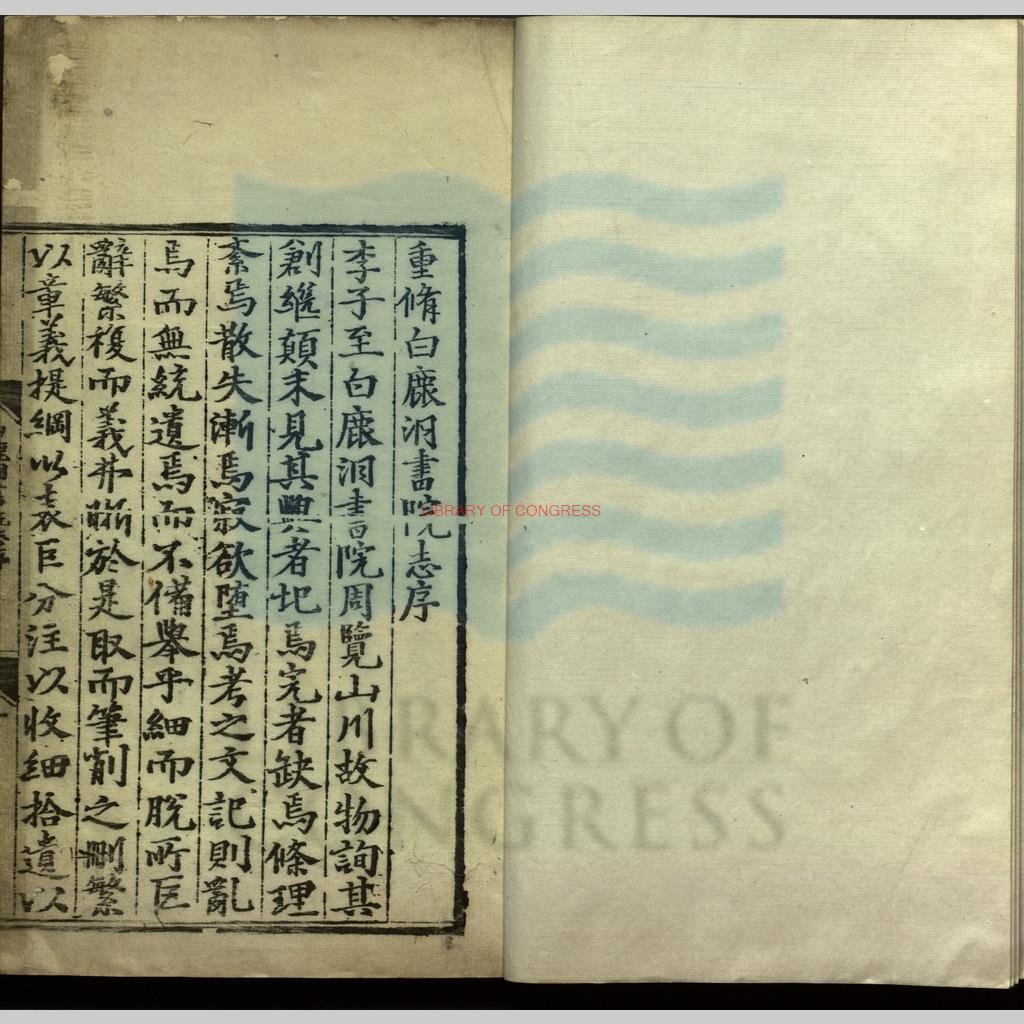 重脩白鹿洞書院志序
李子至白鹿洞書院周覽山川故物詢其
創繼顛末見其興者圮焉完者缺焉條理
紊焉散失漸焉寂欲墮焉考之文記則亂
焉而無統遺焉而不備舉乎細而脫所巨
辭繁複而義弗晰於是取而筆削之刪繁
以章義提綱以表巨分注以收細拾遺以
LIBRARY OF CONGRESS
LIBRARY OF
CONGRESS